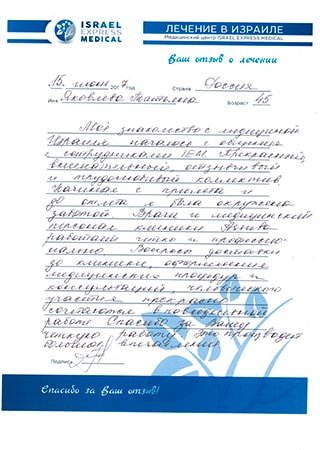 ISRAEL
EXPRESS
MEDICAL
ЛЕЧЕНИЕ В ИЗРАИЛЕ
Медицинский центр ISRAEL EXPRESS MEDICAL
Ваш отзыв о лечении
15 2017 год Страна Россия
Имя Яковлева Татьяна Возраст 45
Моё знакомство с медициной
Израиля началось с общения
с сотрудниками IEM. Прекрасный,
внимательный, отзывчивый
и трудолюбивый коллектив.
Начиная с прилета и
до отлета я была окружена
заботой. Врачи и медицинский
персонал клиники
работают чётко и профессио-
нально. Вопросы доставки
до клиники, оформление
медицинских процедур и
консультаций, человеческого
участия прекрасно
сочетаются в повседневной
работе. Спасибо за Вашу
чёткую работу. Это производит
большое впечатление.
Подпись
Спасибо за Ваш отзыв!